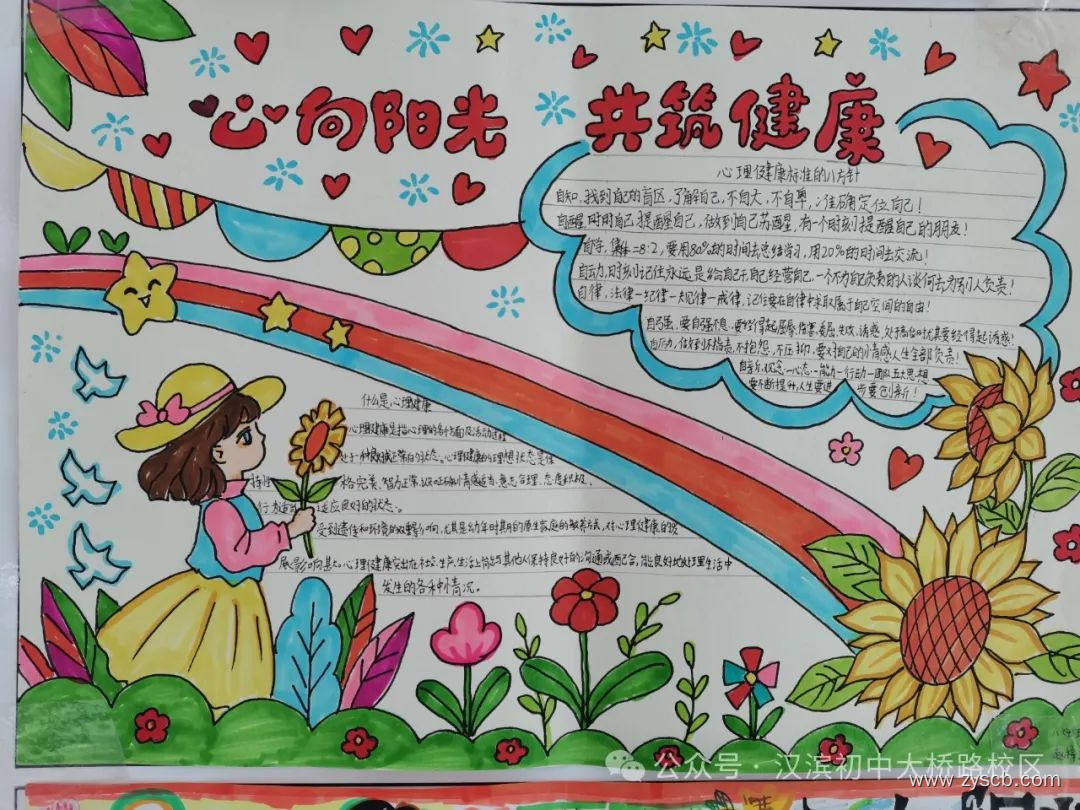 心向阳光 共筑健康
心理健康标准的八方针
自知,找到自己的盲区,了解自己,不自大,不自卑,准确定位自己!
自醒,时时自己提醒自己,做到自己苏醒,有一个时刻提醒自己的朋友!
自学, =8:2,要用80%的时间去总结学习,用20%的时间去交流!
自动,时刻记住永远是给自己干,自己经营自己,一个不为自己负责的人谈何去为别人负责!
自律,法律一纪律一规律一戒律,记住要在自律中采取属于自己空间的自由!
自强,要自强不息,要经得起屈辱、伤害、委屈、失败、诱惑,处于高位时尤其要经得起诱惑!
做到不指责,不抱怨,不压抑,要对自己的心情感人生全部负责!
自新,心态一能力一行动一团队五大思想
要不断提升,人生要进一步要创新!
什么是心理健康
心理健康是指心理的各个方面及活动过程
处于一种良好或正常的状态。心理健康的理想状态是保
持性格完美、智力正常、认知正确、情感适当、意志合理、态度积极、
行为 适应良好的状态。
受到遗传和环境的双重影响,尤其是幼年时期的原生家庭的教养方式,对心理健康的发
展影响甚大。心理健康突出在社交、生产、生活上能与其他人保持良好的沟通或配合,能良好地处理生活中
发生的各种情况。
公众号 · 汉滨初中大桥路校区
www.zyscb.com